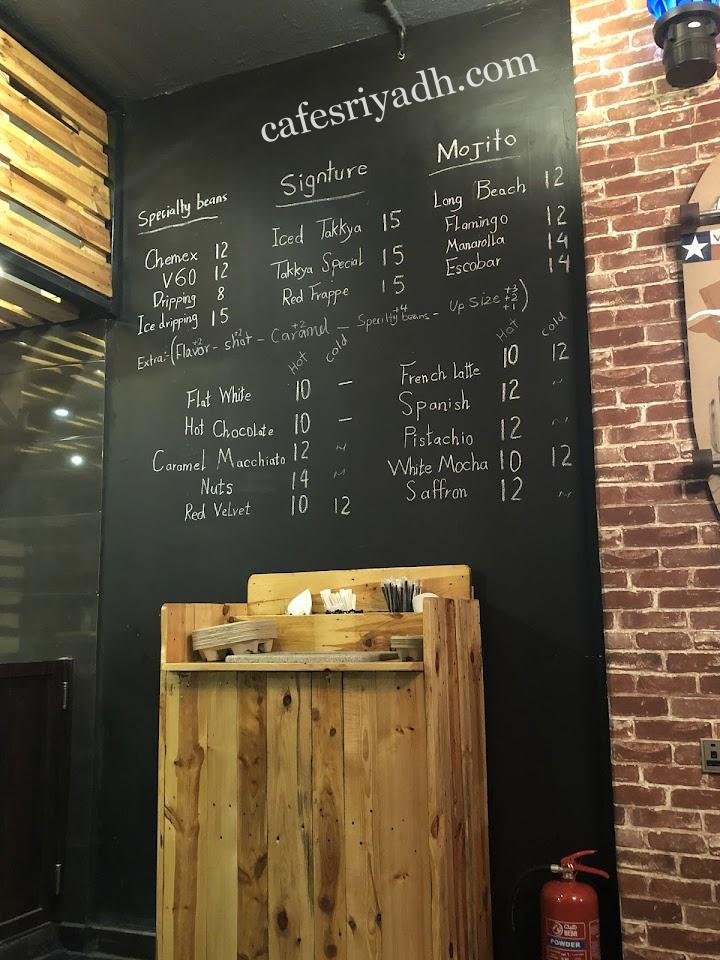 cafesriyadh.com
Specialty beans
Chemex 12
V60 12
Dripping 8
Ice dripping 15
Signture
Iced Takkya 15
Takkya Special 15
Red Frappe 15
Mojito
Long Beach 12
Flamingo 12
Manarolla 14
Escobar 14
Extra:-(Flavor +2 - shot +2 - Caramel +2 - Specilty beans +4 - Up Size +3 +2 +1)
Hot Cold
Flat White 10 –
Hot Chocolate 10 –
Caramel Macchiato 12 ~
Nuts 14 ~
Red Velvet 10 12
Hot Cold
French latte 10 12
Spanish 12 ~
Pistachio 12 ~
White Mocha 10 12
Saffron 12 ~
POWDER